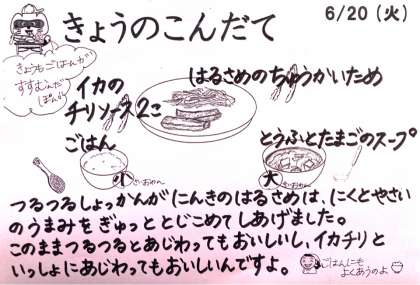 きょうのこんだて
6/20（火）
きょうもごはんが
すすむんだ
ぽんぽ
はるさめのちゅうかいため
イカの
チリソース2こ
ごはん
小
とうふとたまごのスープ
大
つるつるしょっかんがにんきのはるさめは、にくとやさい
のうまみをぎゅっととじこめてしあげました。
このままつるつるとあじわってもおいしいし、イカチリと
いっしょにあじわってもおいしいんですよ。
ごはんにも
よくあうのよ